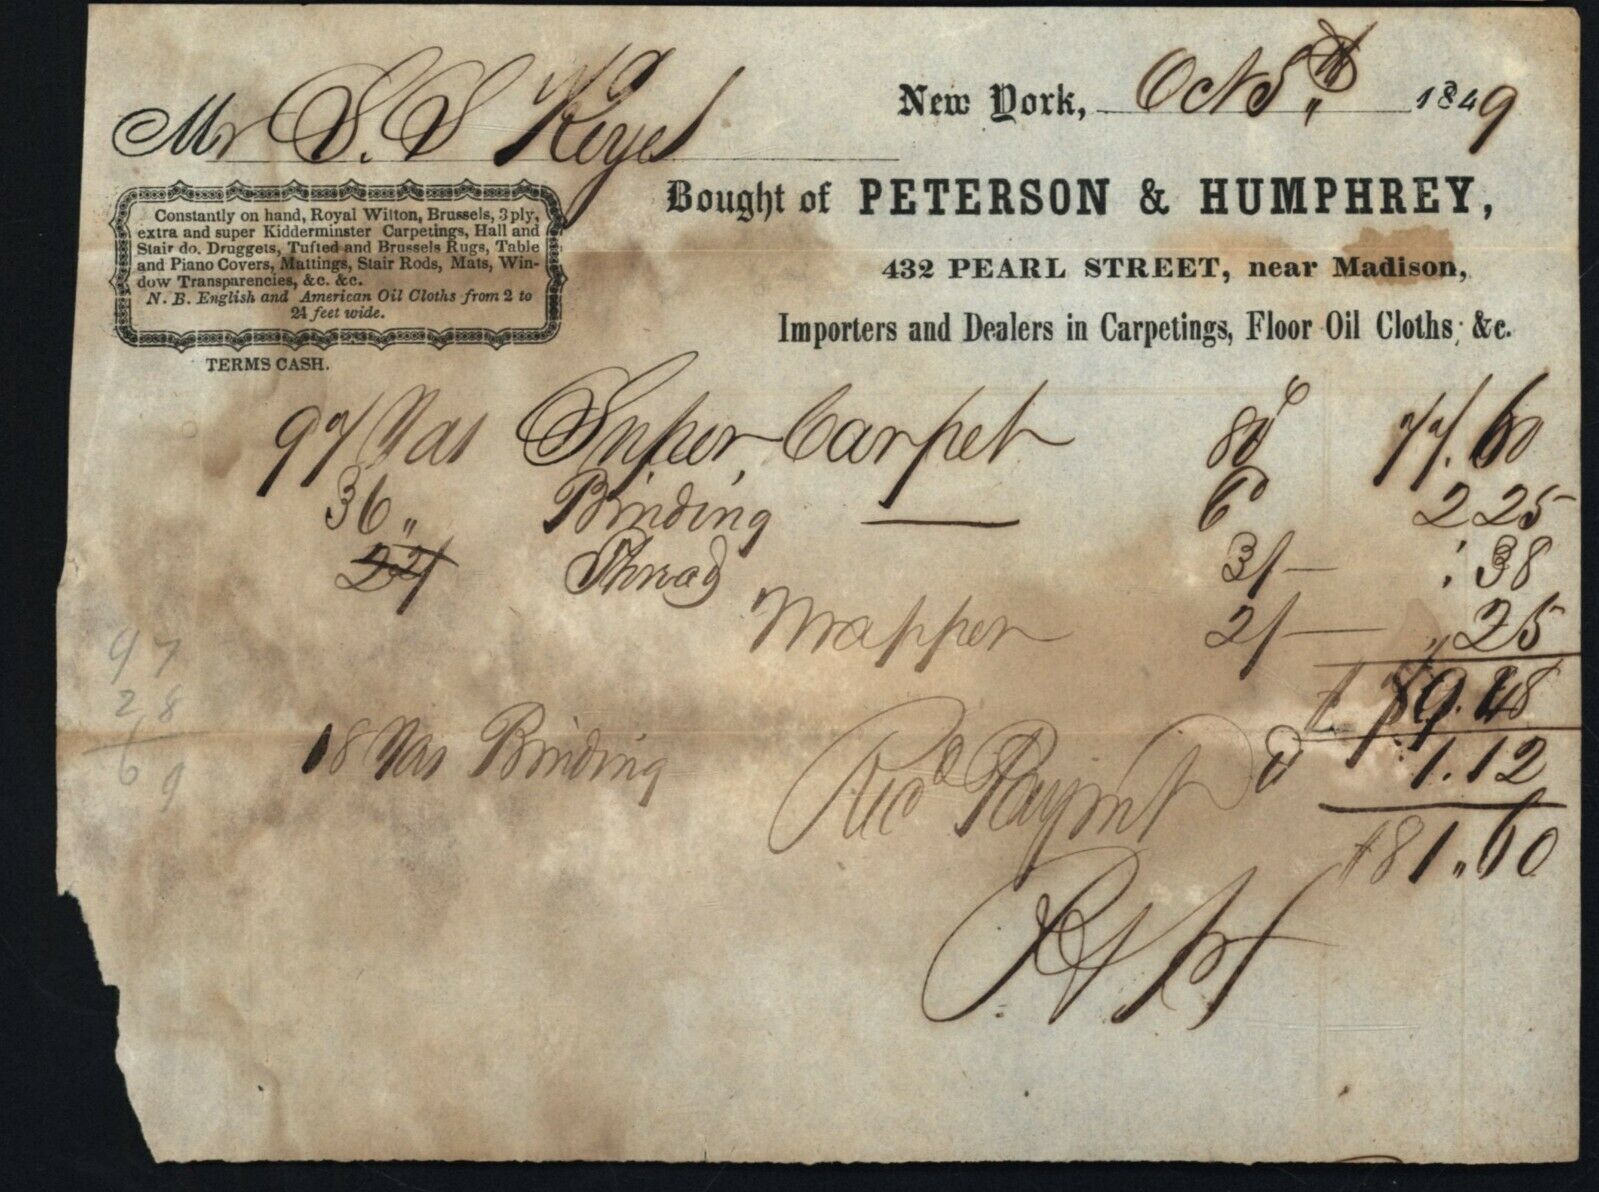 New York, Oct 5th 1849
Mr S. S Keyes
Bought of PETERSON & HUMPHREY,
432 PEARL STREET, near Madison,
Importers and Dealers in Carpetings, Floor Oil Cloths, &c.
Constantly on hand, Royal Wilton, Brussels, 3 ply,
extra and super Kidderminster Carpetings, Hall and
Stair do. Druggets, Tufted and Brussels Rugs, Table
and Piano Covers, Mattings, Stair Rods, Mats, Win-
dow Transparencies, &c. &c.
N. B. English and American Oil Cloths from 2 to
24 feet wide.
TERMS CASH.
97 Yds Super Carpet 80c 77.60
36 „ Binding 6d 2 25
Thread 3/- 38
Wrapper 2/- „ 25
.48
18 Yds Binding 1.12
Recd Paymt $81.60
97
28
69